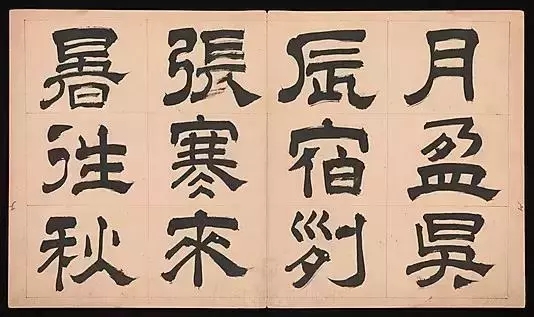 月盈昃
辰宿列
張寒來
暑徃秋